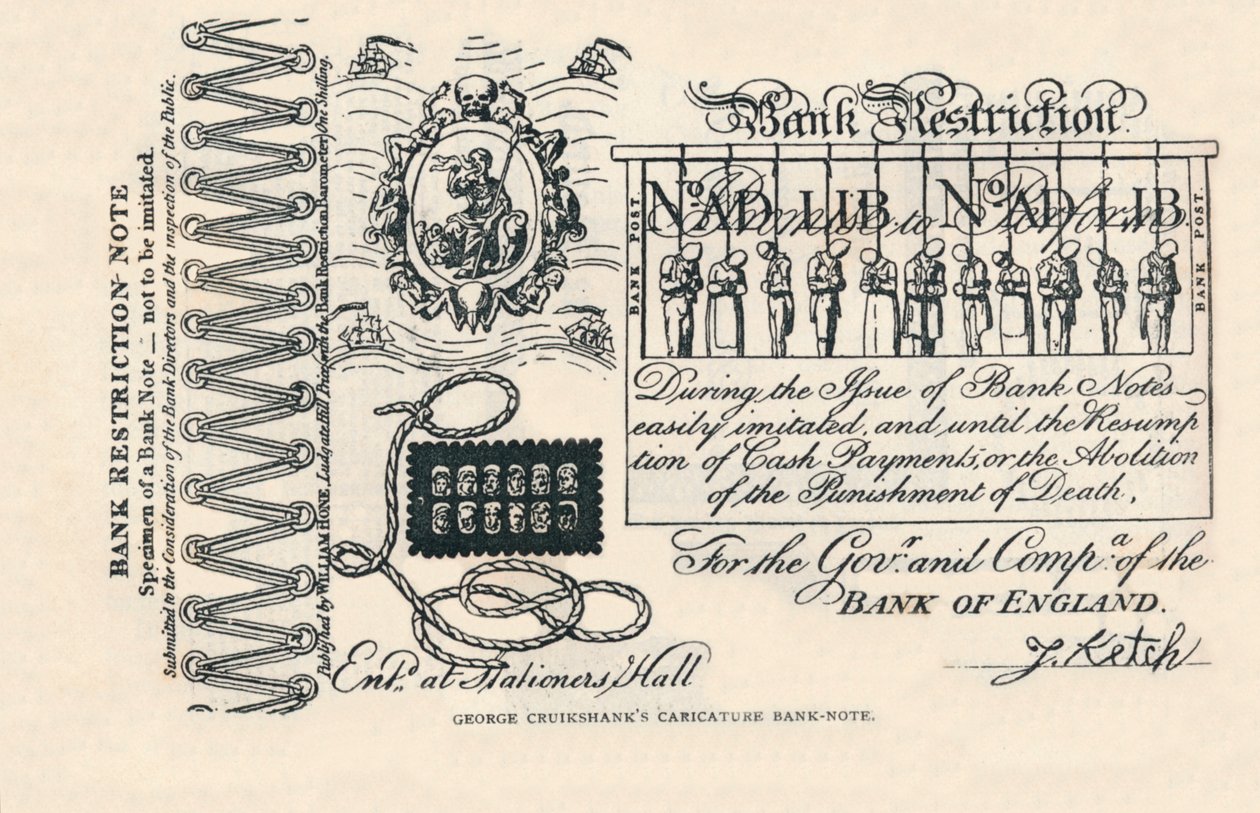 BANK RESTRICTION NOTE
Specimen of a Bank Note — not to be imitated.
Submitted to the Consideration of the Bank Directors and the inspection of the Public.
Published by WILLIAM HONE, Ludgate Hill Price with the Bank Restriction Barometer, One Shilling.
Bank Restriction.
No. AD LIB No. AD LIB
Promise to Perform
BANK POST.
BANK POST.
During the Issue of Bank Notes
easily imitated, and until the Resump
tion of Cash Payments, or the Abolition
of the Punishment of Death,
For the Govr. and Compa. of the
BANK OF ENGLAND.
J. Ketch
Entd. at Stationers Hall
GEORGE CRUIKSHANK'S CARICATURE BANK-NOTE.